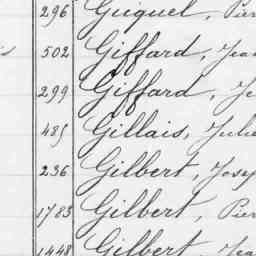 296 Guquel, Pier
502 Giffard, Jean
299 Giffard, Je
485 Gillais, Julie
236 Gilbert, Josep
1783 Gilbert, Pier
1448 Gilbert, Jea